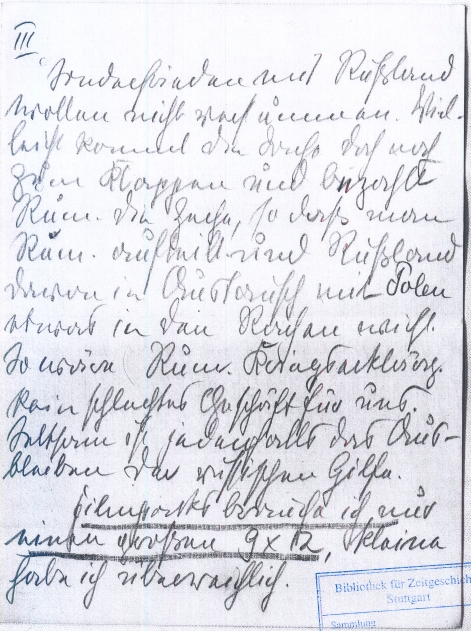 III
Sonderfrieden mit Rußland
wollen nicht verstummen. Viel-
leicht kommt die Sache doch noch
zum Klappen und bezahlt
Rum. die Zeche, so daß man
Rum. aufteilt und Rußland
davon im Austausch mit Polen
etwas in den Rachen wirft.
So wäre Rum. Kriegserklärg.
kein schlechtes Geschäft für uns.
Seltsam ist jedenfalls das Aus-
bleiben der russischen Hilfe.
Filmpacks brauche ich nur
einen großen 9 x 12, kleine
habe ich überreichlich.
Bibliothek für Zeitgeschich
Stuttgart
Sammlung